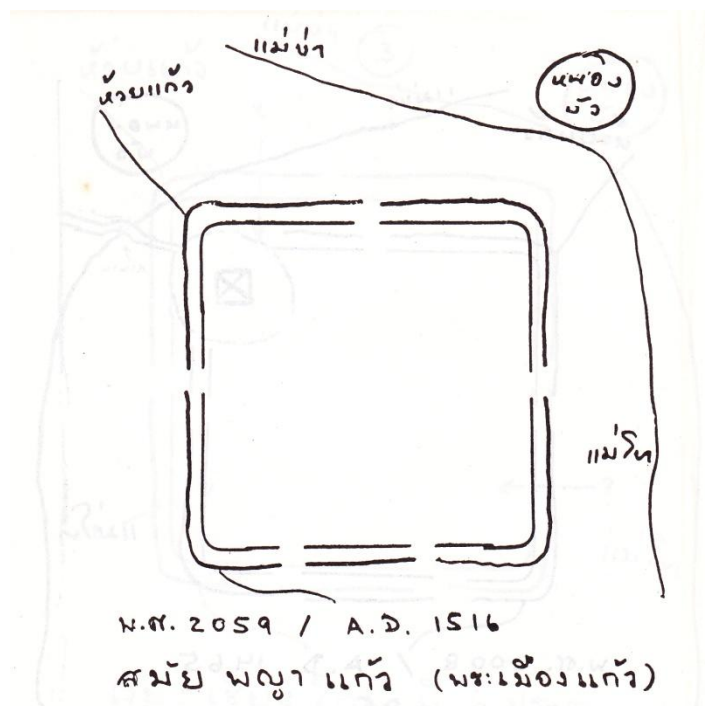 แม่ข่า
ห้วยแก้ว
หนอง
บัว
แม่โท
พ.ศ. 2059 / A.D. 1516
สมัย พญาแก้ว (พระเมืองแก้ว)